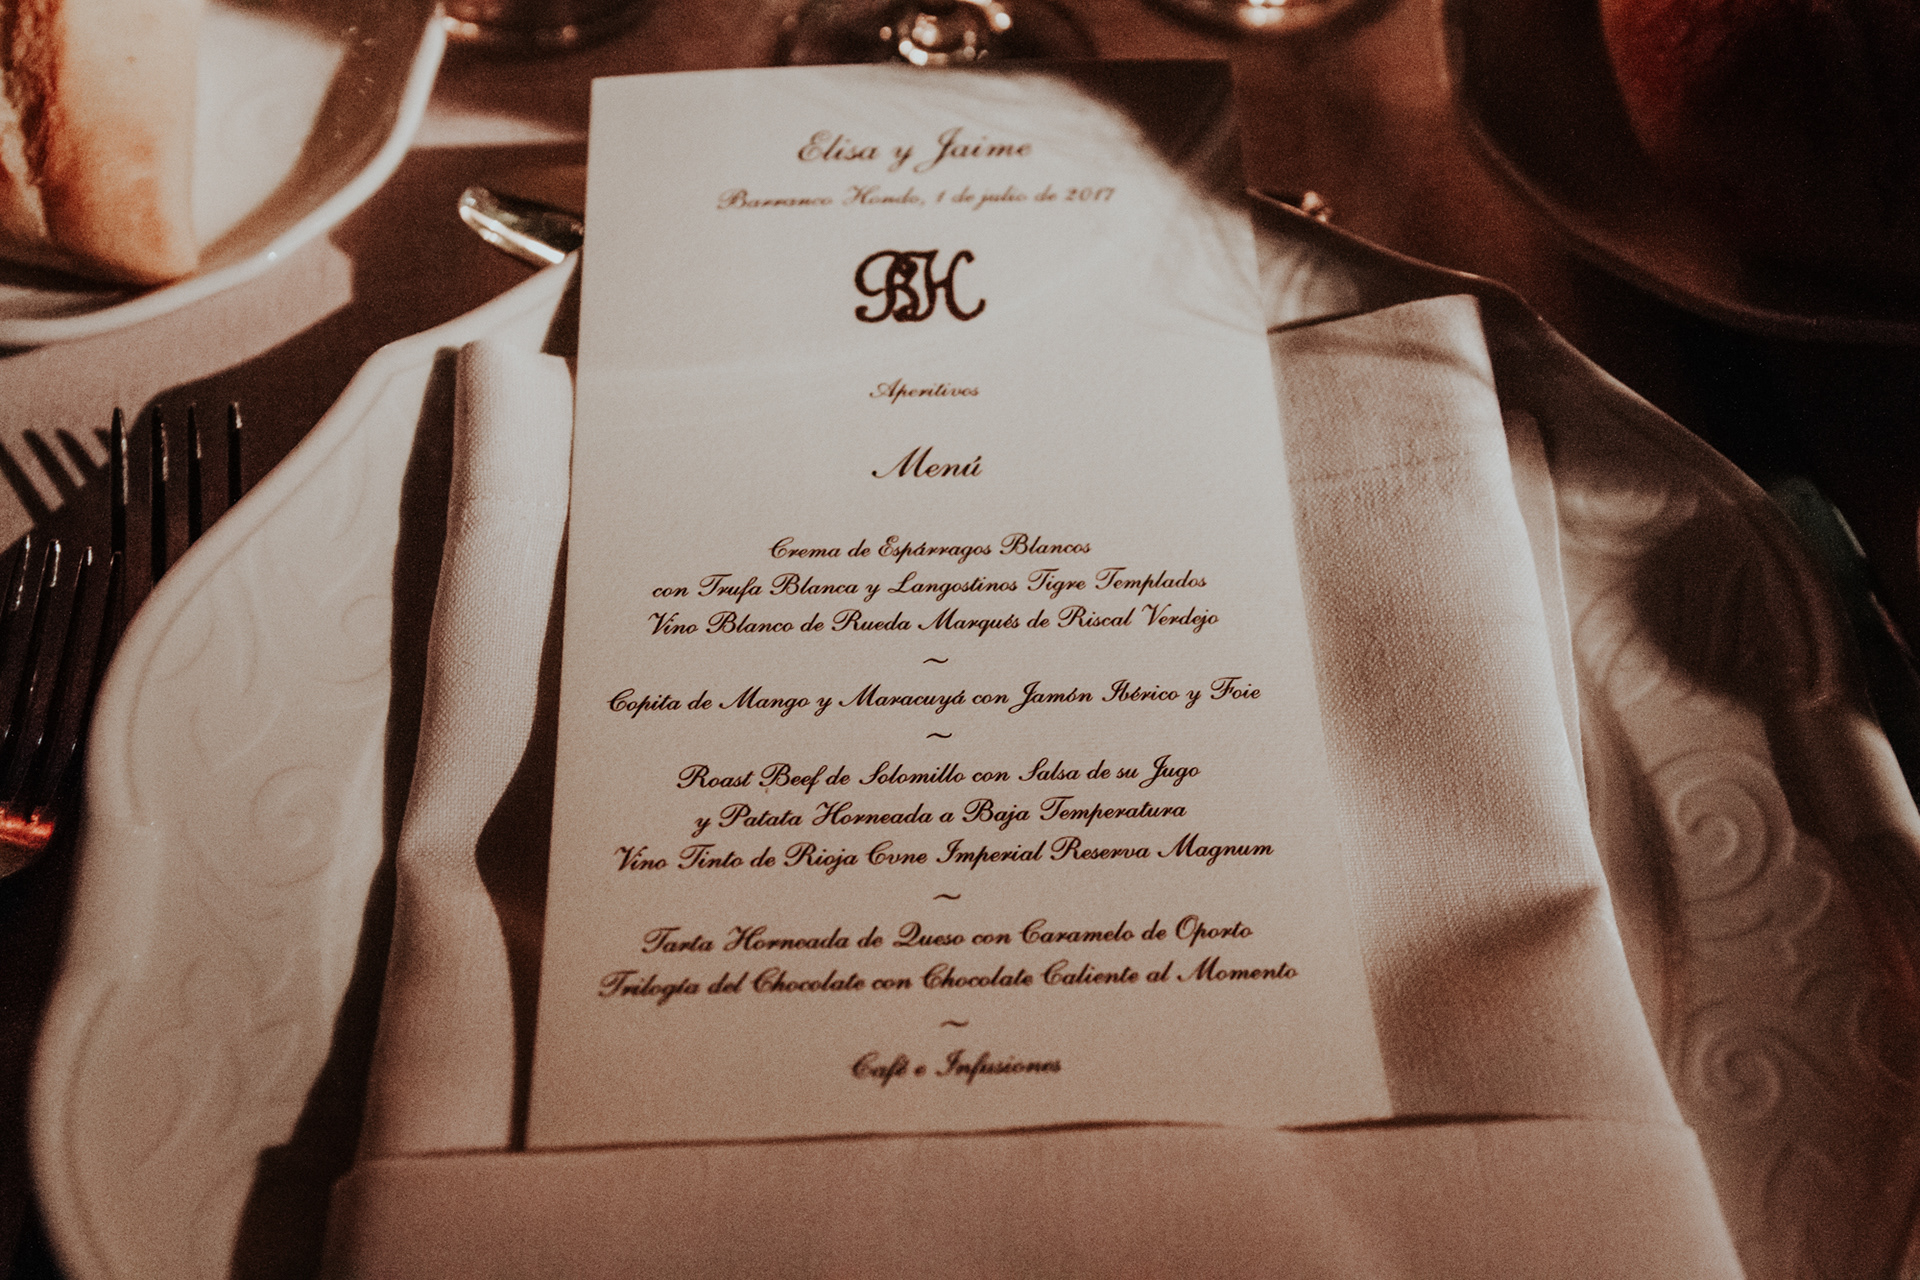 Elisa y Jaime
Barranco Hondo, 1 de julio de 2017
BH
Aperitivos
Menú
Crema de Espárragos Blancos
con Trufa Blanca y Langostinos Tigre Templados
Vino Blanco de Rueda Marqués de Riscal Verdejo
~
Copita de Mango y Maracuyá con Jamón Ibérico y Foie
~
Roast Beef de Solomillo con Salsa de su Jugo
y Patata Horneada a Baja Temperatura
Vino Tinto de Rioja Cvne Imperial Reserva Magnum
~
Tarta Horneada de Queso con Caramelo de Oporto
Trilogía del Chocolate con Chocolate Caliente al Momento
~
Café e Infusiones